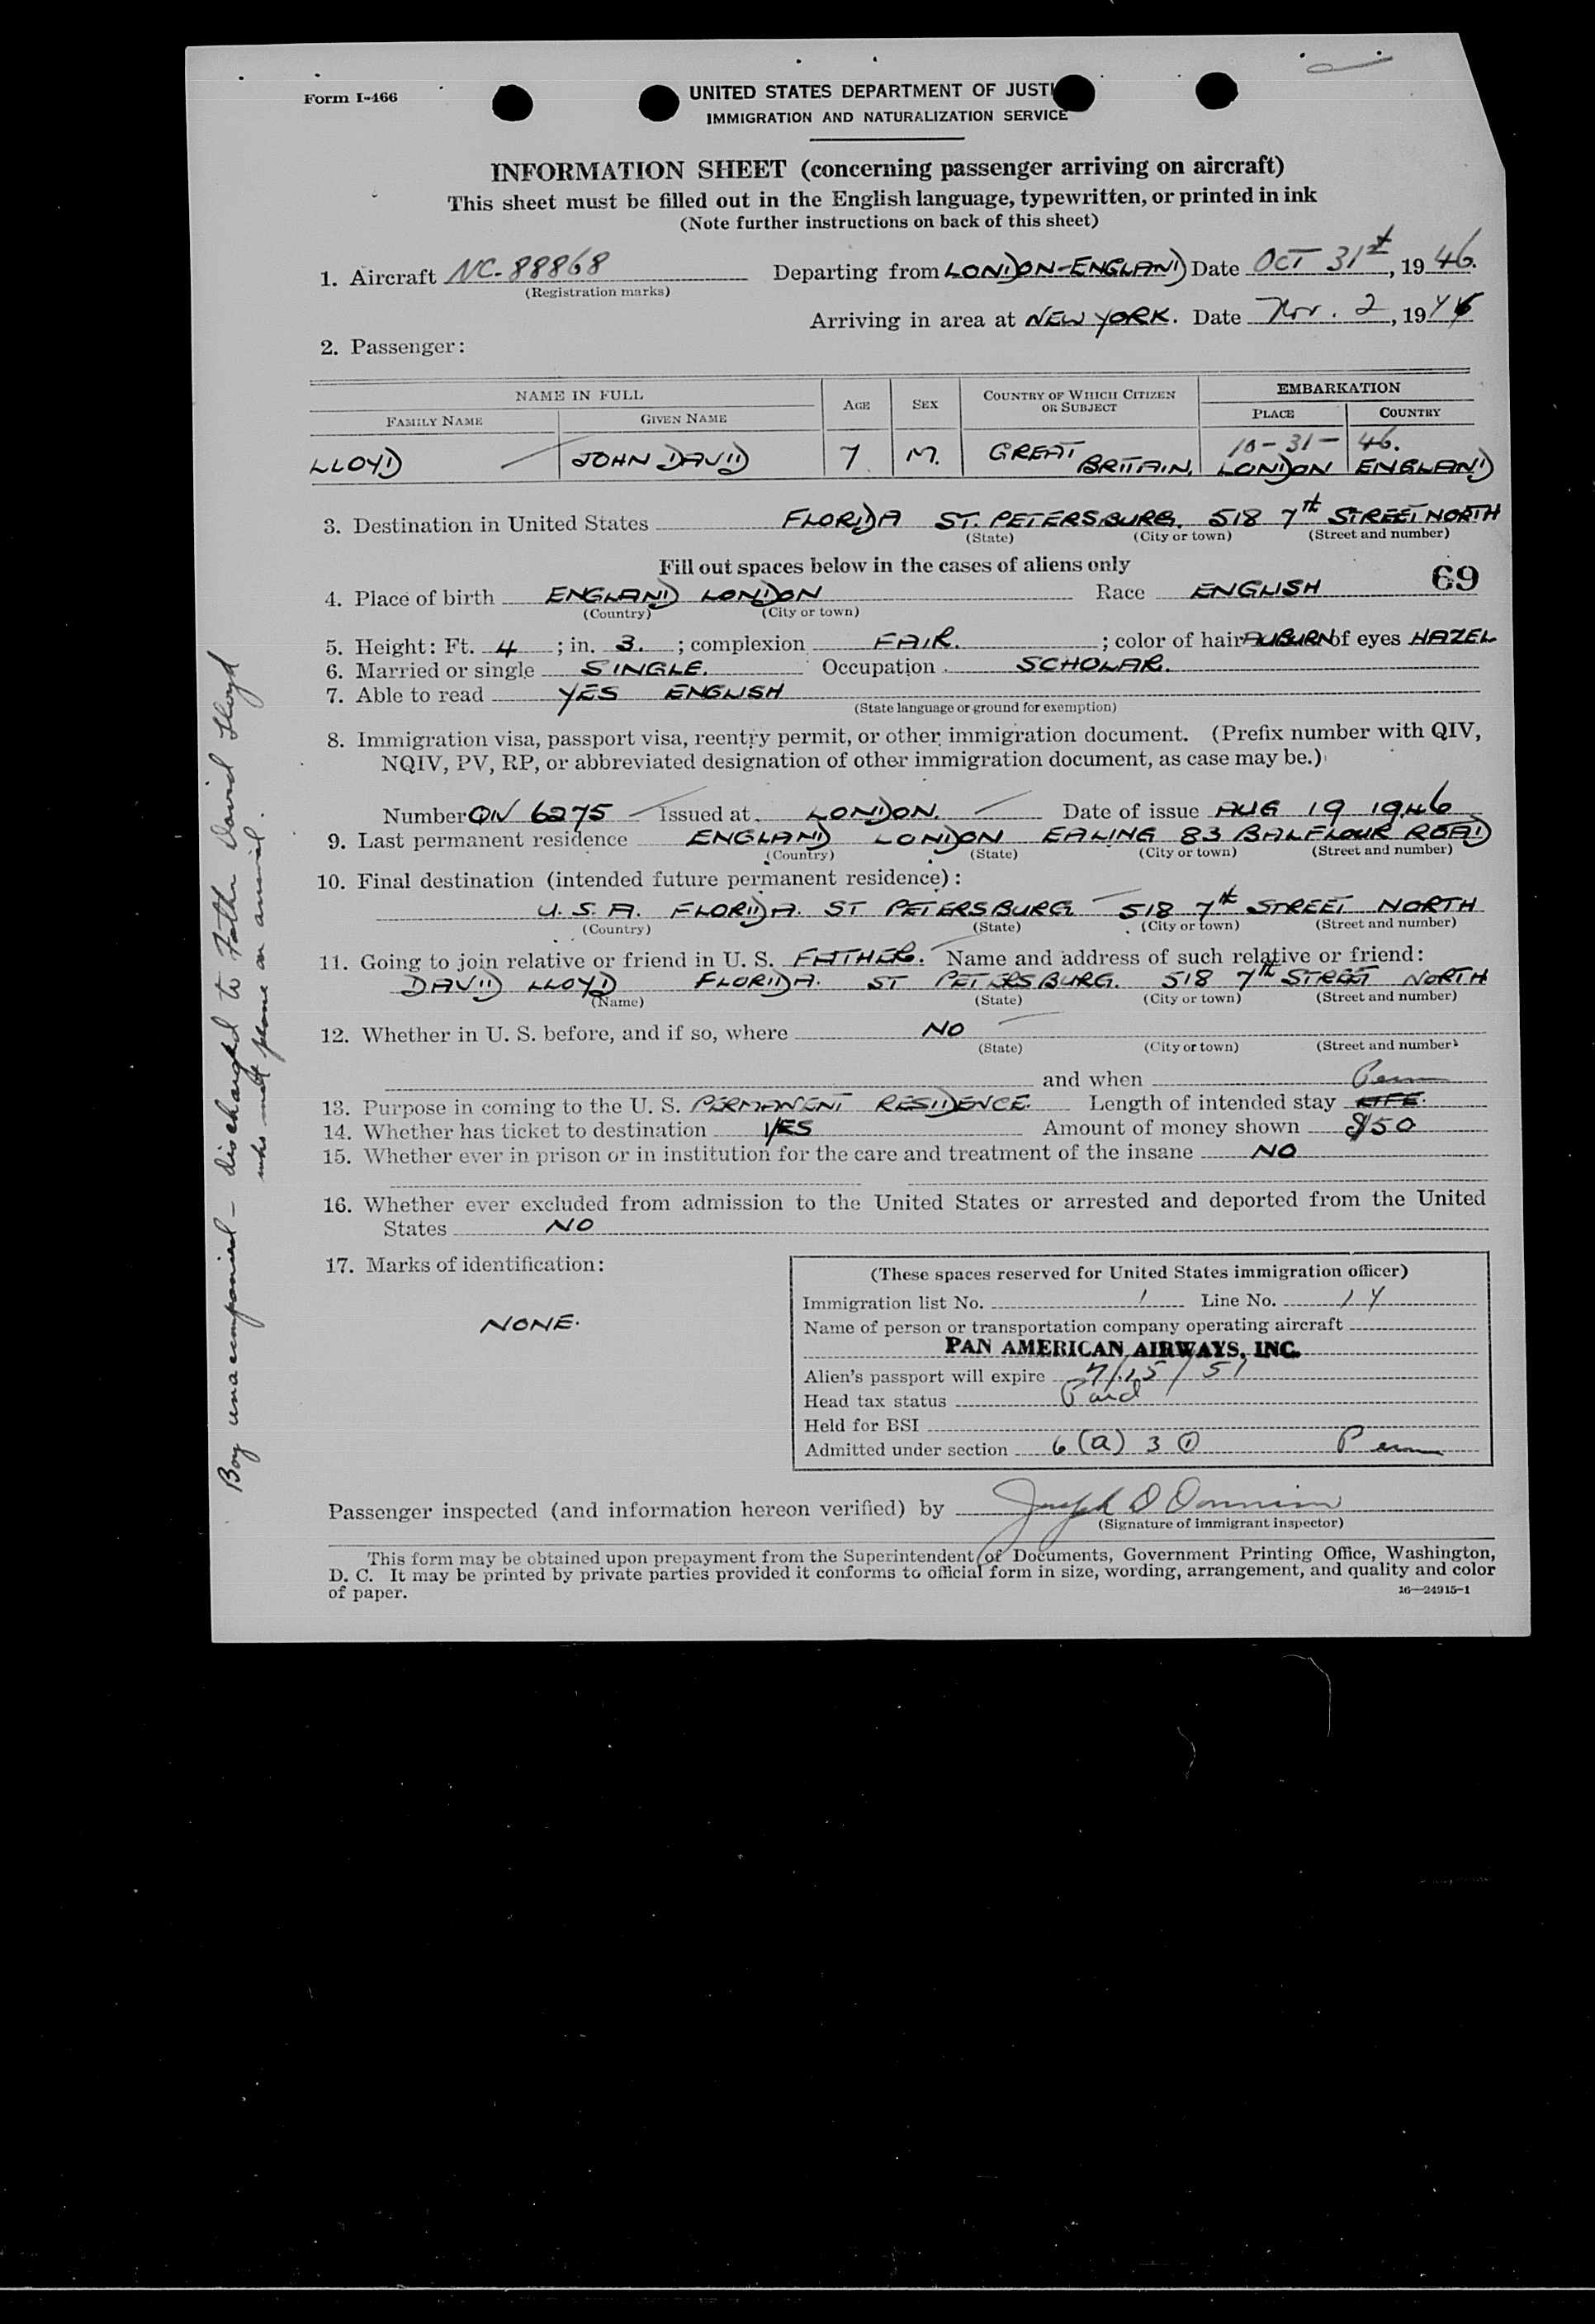 Form I-466
UNITED STATES DEPARTMENT OF JUSTI
IMMIGRATION AND NATURALIZATION SERVICE
INFORMATION SHEET (concerning passenger arriving on aircraft)
This sheet must be filled out in the English language, typewritten, or printed in ink
(Note further instructions on back of this sheet)
1. Aircraft NC-88868 Departing from LONDON-ENGLAND Date OCT 31st, 1946.
(Registration marks)
Arriving in area at NEW YORK. Date Nov. 2, 1946
2. Passenger:
NAME IN FULL AGE SEX COUNTRY OF WHICH CITIZEN OR SUBJECT EMBARKATION
FAMILY NAME GIVEN NAME PLACE COUNTRY
10-31-46.
LLOYD JOHN DAVID 7 M. GREAT BRITAIN. LONDON ENGLAND
3. Destination in United States FLORIDA ST. PETERSBURG. 518 7th STREET NORTH
(State) (City or town) (Street and number)
Fill out spaces below in the cases of aliens only
69
4. Place of birth ENGLAND LONDON Race ENGLISH
(Country) (City or town)
5. Height: Ft. 4; in. 3.; complexion FAIR.; color of hair AUBURN of eyes HAZEL
6. Married or single SINGLE. Occupation SCHOLAR.
7. Able to read YES ENGLISH
(State language or ground for exemption)
8. Immigration visa, passport visa, reentry permit, or other immigration document. (Prefix number with QIV,
NQIV, PV, RP, or abbreviated designation of other immigration document, as case may be.)
Number QIV 6275 Issued at LONDON. Date of issue AUG 19 1946
9. Last permanent residence ENGLAND LONDON EALING 83 BALFLOUR ROAD
(Country) (State) (City or town) (Street and number)
10. Final destination (intended future permanent residence):
U.S.A. FLORIDA. ST PETERSBURG 518 7th STREET NORTH
(Country) (State) (City or town) (Street and number)
11. Going to join relative or friend in U. S. FATHER. Name and address of such relative or friend:
DAVID LLOYD FLORIDA. ST PETERSBURG. 518 7th STREET NORTH
(Name) (State) (City or town) (Street and number)
12. Whether in U. S. before, and if so, where NO
(State) (City or town) (Street and number)
and when
Perm
13. Purpose in coming to the U. S. PERMANENT RESIDENCE. Length of intended stay LIFE.
14. Whether has ticket to destination YES Amount of money shown $50
15. Whether ever in prison or in institution for the care and treatment of the insane NO
16. Whether ever excluded from admission to the United States or arrested and deported from the United
States NO
17. Marks of identification:
NONE.
(These spaces reserved for United States immigration officer)
Immigration list No. 1 Line No. 14
Name of person or transportation company operating aircraft
PAN AMERICAN AIRWAYS, INC.
Alien's passport will expire 7/15/51
Head tax status Paid
Held for BSI
Admitted under section 6(a) 3 ① Perm
Passenger inspected (and information hereon verified) by Joseph D
(Signature of immigrant inspector)
This form may be obtained upon prepayment from the Superintendent of Documents, Government Printing Office, Washington,
D. C. It may be printed by private parties provided it conforms to official form in size, wording, arrangement, and quality and color
of paper.
16—24915-1
Boy unaccompanied - discharged to Father David Lloyd
who met plane on arrival.